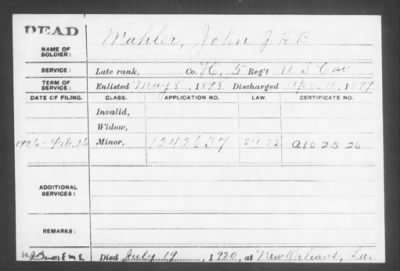 DEAD
NAME OF SOLDIER: Mahler, John
SERVICE: Late rank, Co. 5 Reg't U S Cav
TERM OF SERVICE: Enlisted May 8, 1898, Discharged 1899
DATE OF FILING. CLASS. APPLICATION NO. LAW. CERTIFICATE NO.
Invalid,
Widow,
1926-Feb.26 Minor, 1242637
ADDITIONAL SERVICES:
REMARKS:
Died July 19, 1920, at New Orleans, La.